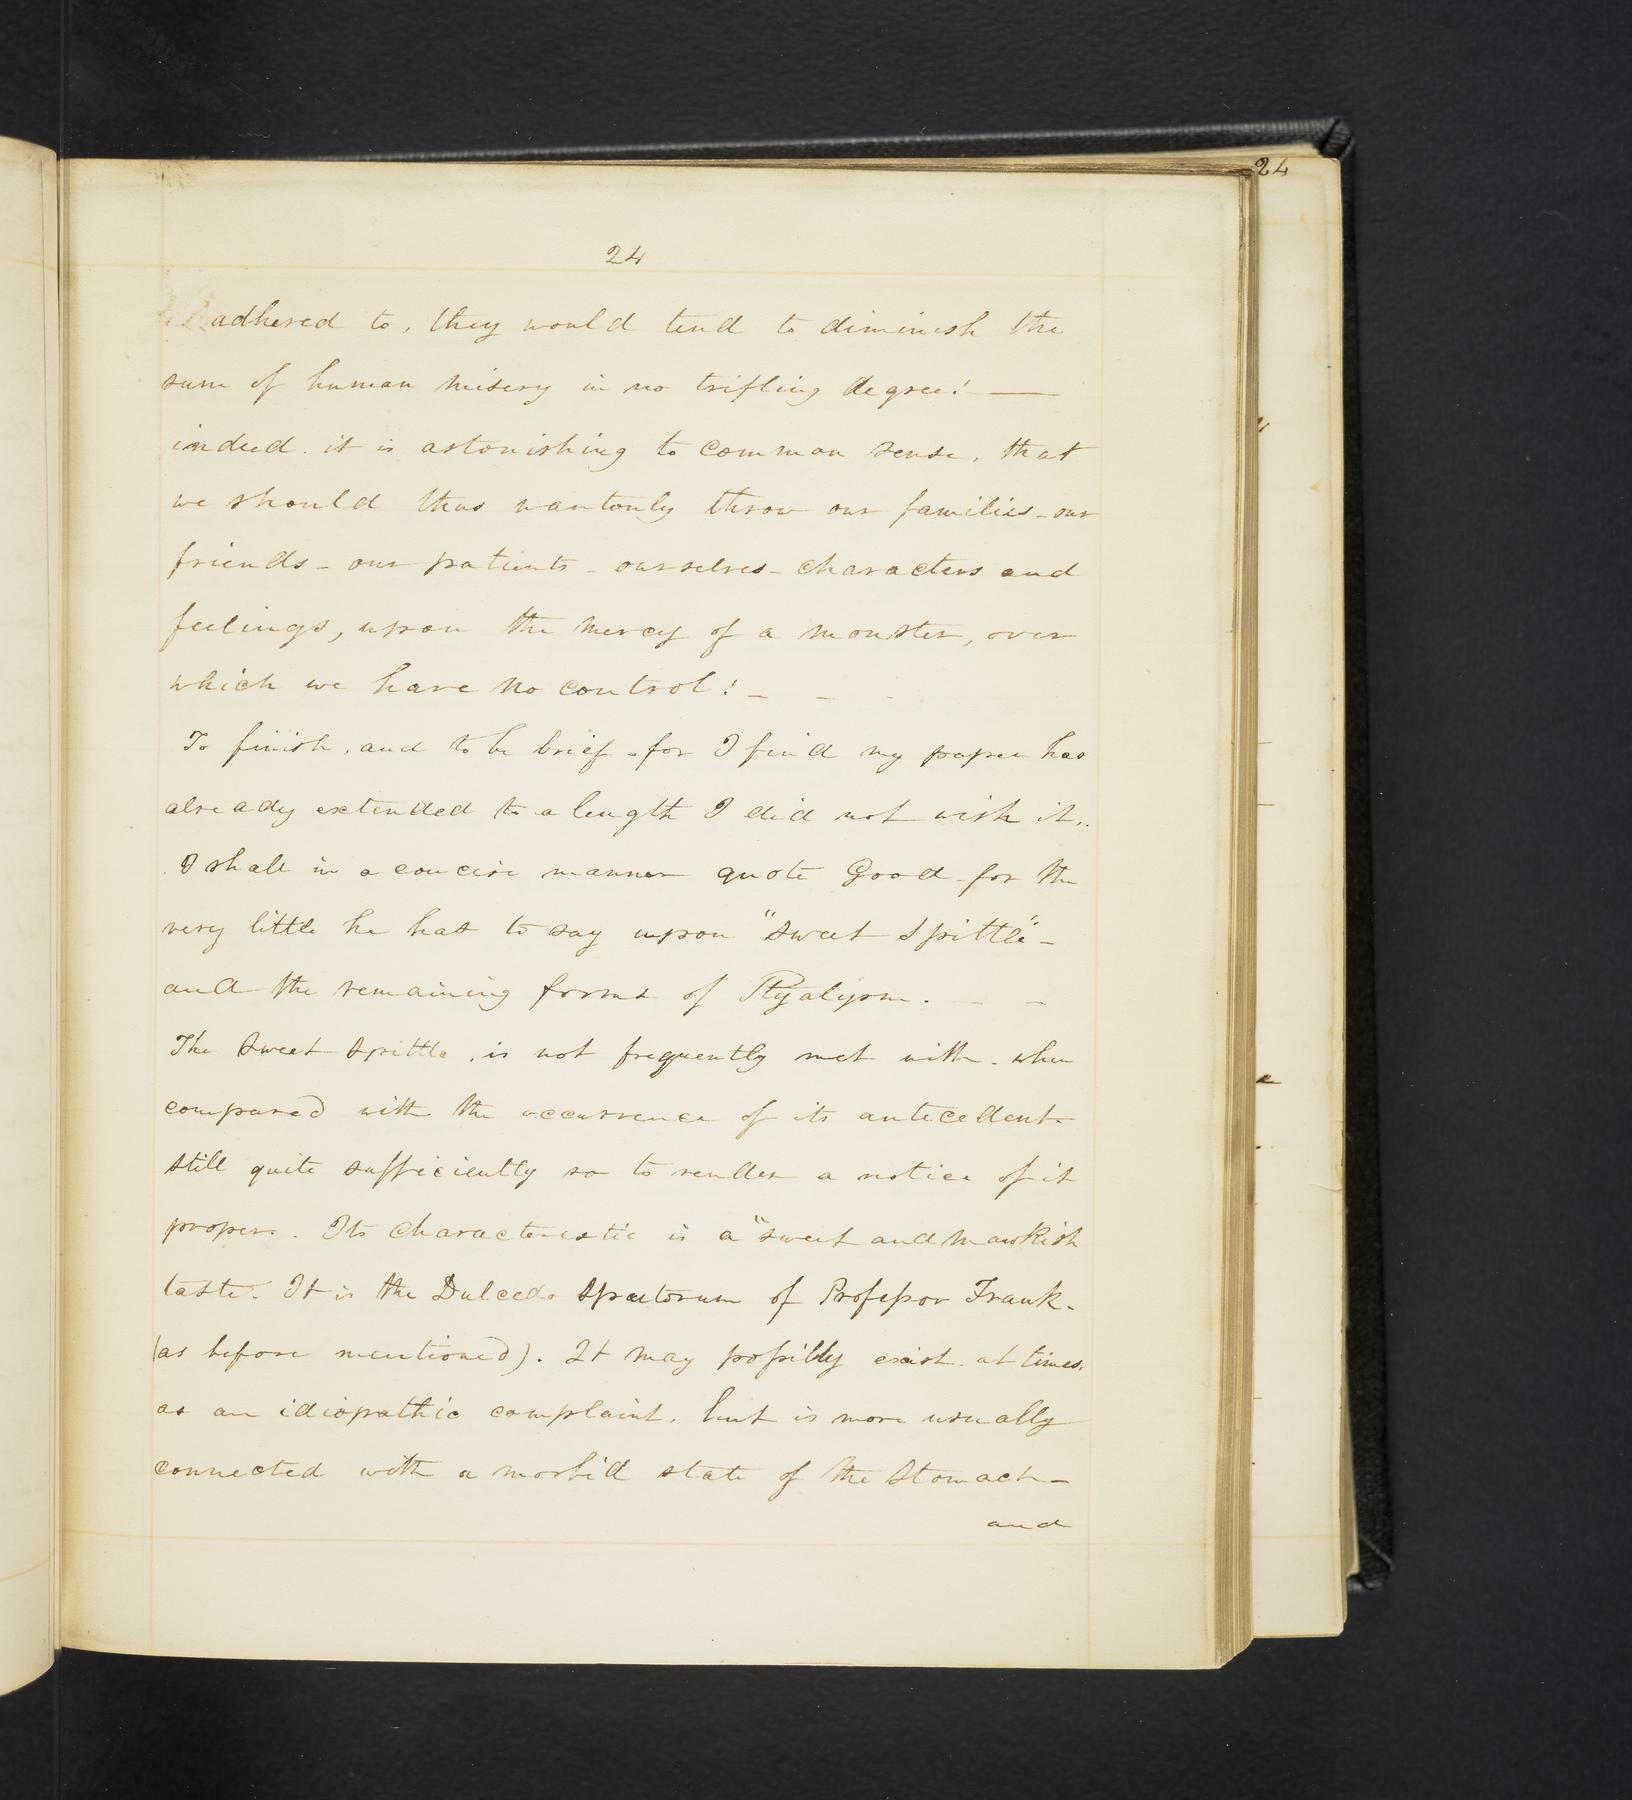 24
24
adhered to, they would tend to diminish the
sum of human misery in no trifling degree! —
indeed. it is astonishing to common sense, that
we should thus wantonly throw our families - our
friends - our patients - ourselves - characters and
feelings, upon the mercy of a monster, over
which we have no control! - - -
To finish, and to be brief - for I find my paper has
already extended to a length I did not wish it..
I shall in a concise manner quote Good - for the
very little he has to say upon "sweet spittle" -
and the remaining forms of Ptyalism. - -
The sweet spittle, is not frequently met with. when
compared with the occurrence of its antecedent.
still quite sufficiently so to render a notice of it
proper. Its characteristic is a "sweet and mawkish
taste". It is the Dulcedo Sputorum of Professor Frank.
(as before mentioned). It may possibly exist at times.
as an idiopathic complaint. but is more usually
connected with a morbid state of the stomach -
and